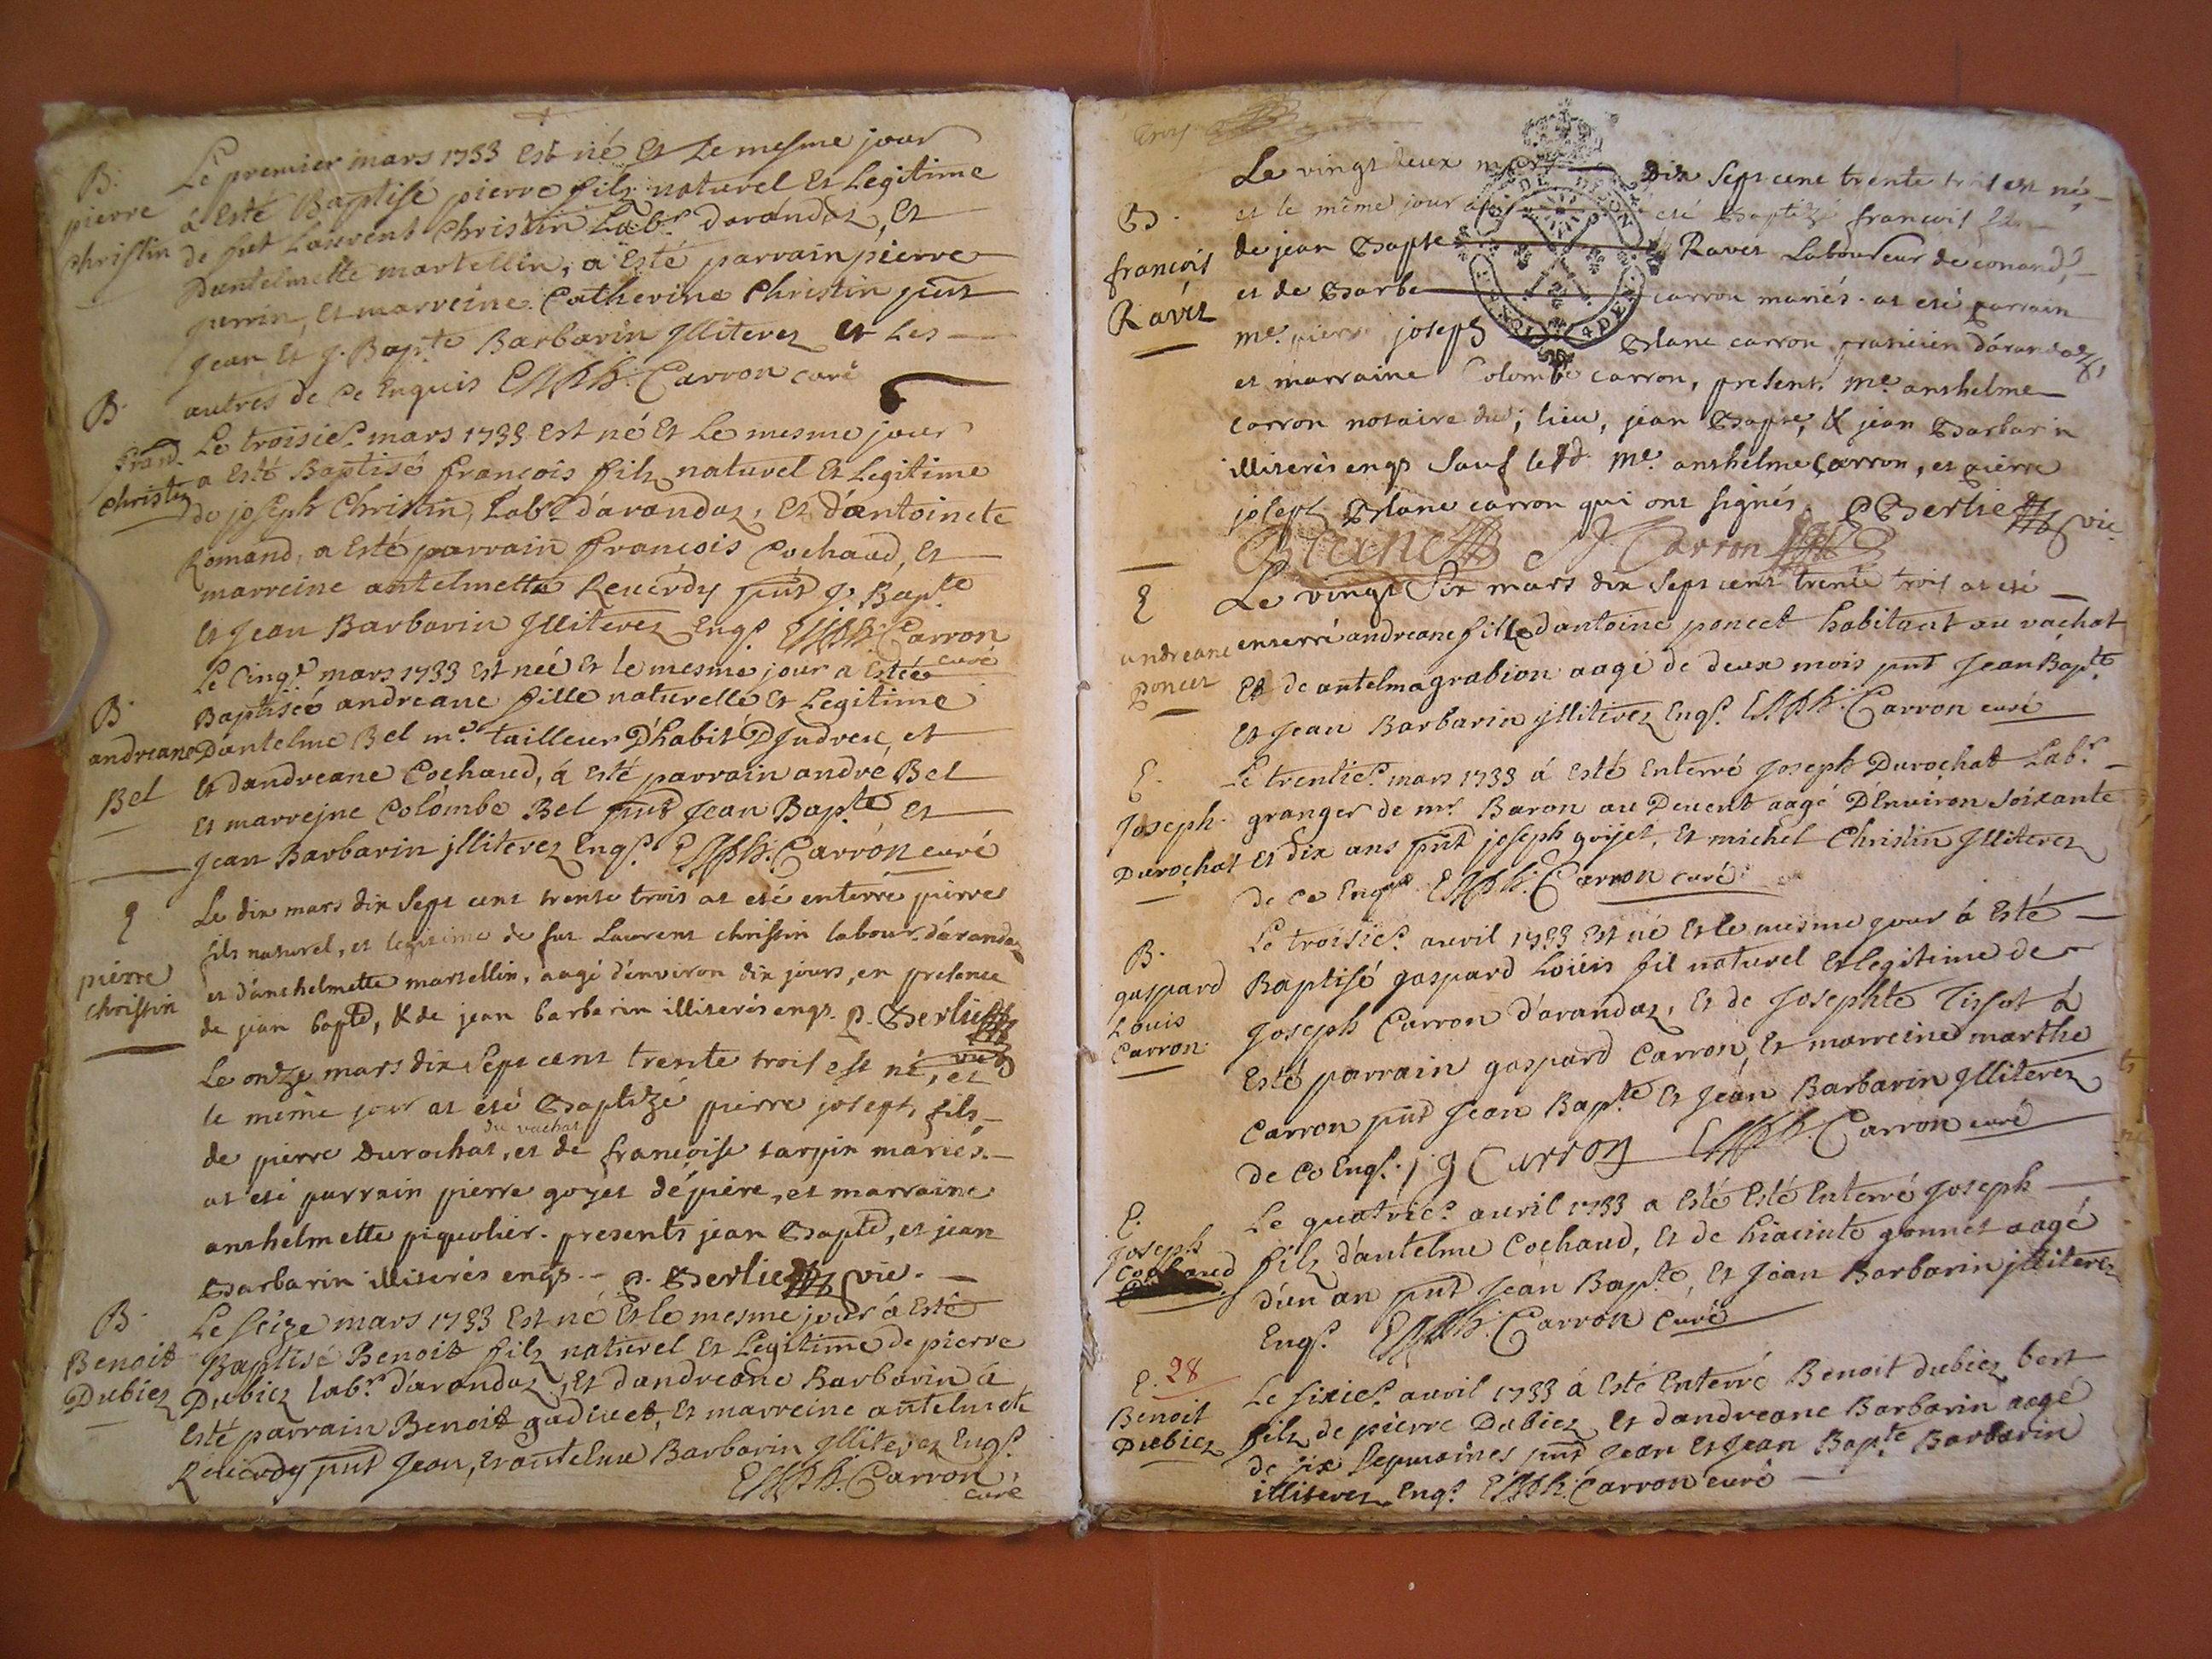 B. Le premier mars 1733 Est né Et Le mesme jour
pierre à Esté Baptisé pierre filz naturel Et Legitime
christin de fut Laurent Christin Lab.r darandaz, Et
Dantelmette martellin, a Esté parrain pierre
perrin, Et marreine Catherine Christin pnt
Jean Et J. Bap.te Barbarin Jlliterez et Les
autres de Ce Enquis Carron curé
B.
Le troisie.e mars 1733 Est né Et Le mesme jour
a Esté Baptisé françois filz naturel Et Legitime
christin de joseph Christin, Lab.r darandaz, Et dantoinete
Romand, a Esté parrain françois Cochaud, Et
marreine antelmette Reverdy pnt J. Bap.te
Et Jean Barbarin Jlliterez Enq.s Carron
curé
Le Cinq.e mars 1733 Est née Et le mesme jour a Estée
B. Baptisée andreane fille naturelle Et Legitime
andreane Dantelme Bel m.e tailleur D'habit DJndreu, et
Bel Et dandreane Cochaud, á Esté parrain andre Bel
Et marrejne Colombe Bel pnt Jean Bap.te et
Jean Barbarin jlliterez Enq.s Carron curé
E Le dix mars dix sept cent trente trois at eté enterré pierre
fils naturel, et legitime de fut Laurent christin labour. darandaz
pierre et d'anthelmette martellin, aagé d'environ dix jours, en presence
christin de jean bapte, & de jean barbarin illiterés enqs. p. Berlie
vic
Le onze mars dix sept cent trente trois est né, et
le même jour at eté Baptizé pierre joseph fils
du vachat
de pierre Durochat, et de françoise tarpin mariés.
at eté parrain pierre goyet dépiere, et marraine
anthelmette piquolier. presents jean Bapte, et jean
Barbarin illiterés enqs. p. Berlie vic.
B. Le seize mars 1733 Est né Et le mesme jour á Esté
Benoit Baptisé Benoit filz naturel Et Legitime de pierre
Dubiez Dubiez lab.r darandaz, Et dandreane Barbarin á
Esté parrain Benoit gudivet, Et marreine antelmete
Reverdy pnt Jean, Et antelme Barbarin Jlliterez Enq.s
Carron,
curé
Troy
Le vingt deux mars Dix sept cent trente trois est né,
B. et le même jour a eté Baptizé francois fils
françois de jean Bapte Ravet Laboureur de conand
Ravet et de Barbe carron mariés. at eté parrain
me. pierre joseph Blanc carron praticien d'arandaz,
et marraine Colombe carron, present. me. anthelme
carron notaire dud; lieu, jean Bapte, & jean Barbarin
illiterés enqs sauf led me. anthelme carron, et pierre
joseph Blanc carron qui ont signés. p Berlie vic.
Blanc Carron
E Le vingt six mars dix sept cent trente trois at eté
andreane enterré andreane fille dantoine poncet habitant au vachat
poncet Et de antelma grabion aagé de deux mois pnt Jean Bap.te
Et Jean Barbarin jlliterez Enq.s Carron curé
E. Le trentie.e mars 1733 á Esté Enterré Joseph Durochat Lab.r
Joseph granger de mr. Baron au Devent aagé DEnviron soixante
Durochat Et dix ans pnt joseph goijet, Et michel Christin Jlliterez
de Ce Enq.s Carron curé
Le troisie.e avril 1733 Est né Et le mesme jour á Esté
B. Baptisé gaspard Loüis fil naturel Et legitime de
gaspard Joseph Carron d'arandaz, Et de Josephte Tissot á
Louis Esté parrain gaspard Carron, Et marreine marthe
Carron Carron pnt Jean Bap.te Et Jean Barbarin Jlliterez
de Ce Enq.s j g Carron Carron curé
E. Le quatrie.e avril 1733 a Esté Esté Enterré Joseph
Joseph filz d'antelme Cochaud, Et de hiacinte gonnet aagé
Cochaud d'un an pnt Jean Bap.te Et Jean Barbarin jlliterez
Enq.s Carron Curé
E. 28 Le sixie.e avril 1733 á Esté Enterré Benoit dubiez bert
Benoit filz de pierre Dubiez Et dandreane Barbarin aagé
Dubiez de six sepmaines pnt Jean Et Jean Bap.te Barbarin
illiterez Enq.s Carron curé